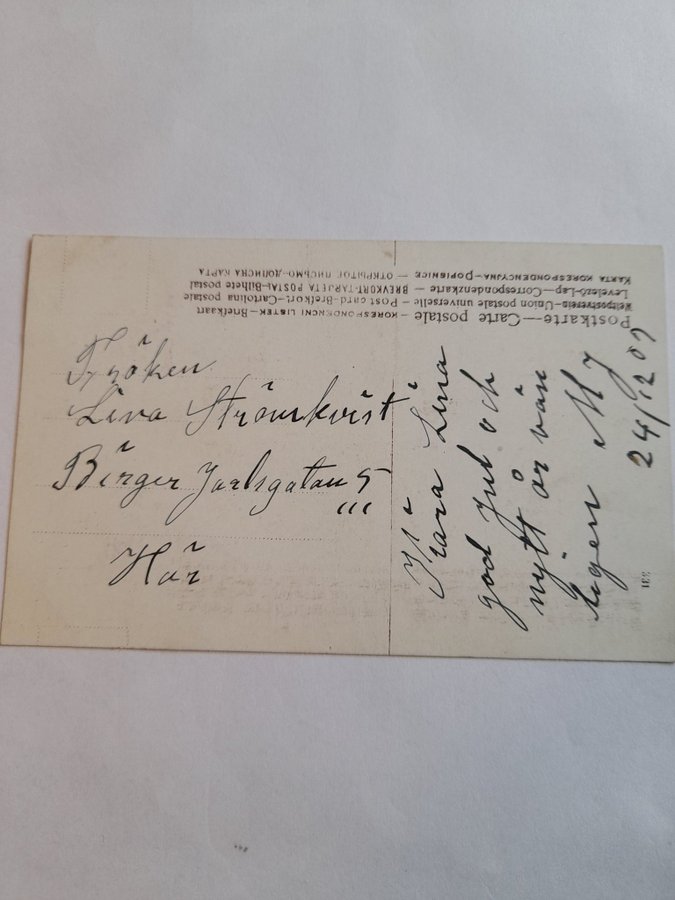 Postkarte—Carte postale — KORESPONDENCNI LISTEK—Briefkaart
Weltpostverein—Union postale universelle — Post card—Brefkort—Cartolina postale
Levelező-Lap—Correspondenzkarte — BREVKORT—TARJETA POSTAL—Bilhete postal
KARTA KORESPONDENCYJNA—DOPISNICE — ОТКРЫТОЕ ПИСЬМО—ДОПИСНА КАРТА
Fröken
Lina Strömkvist
Birger Jarlsgatan 5
Här
Kära Lina
god Jul och
nytt år
M J
24/12 07